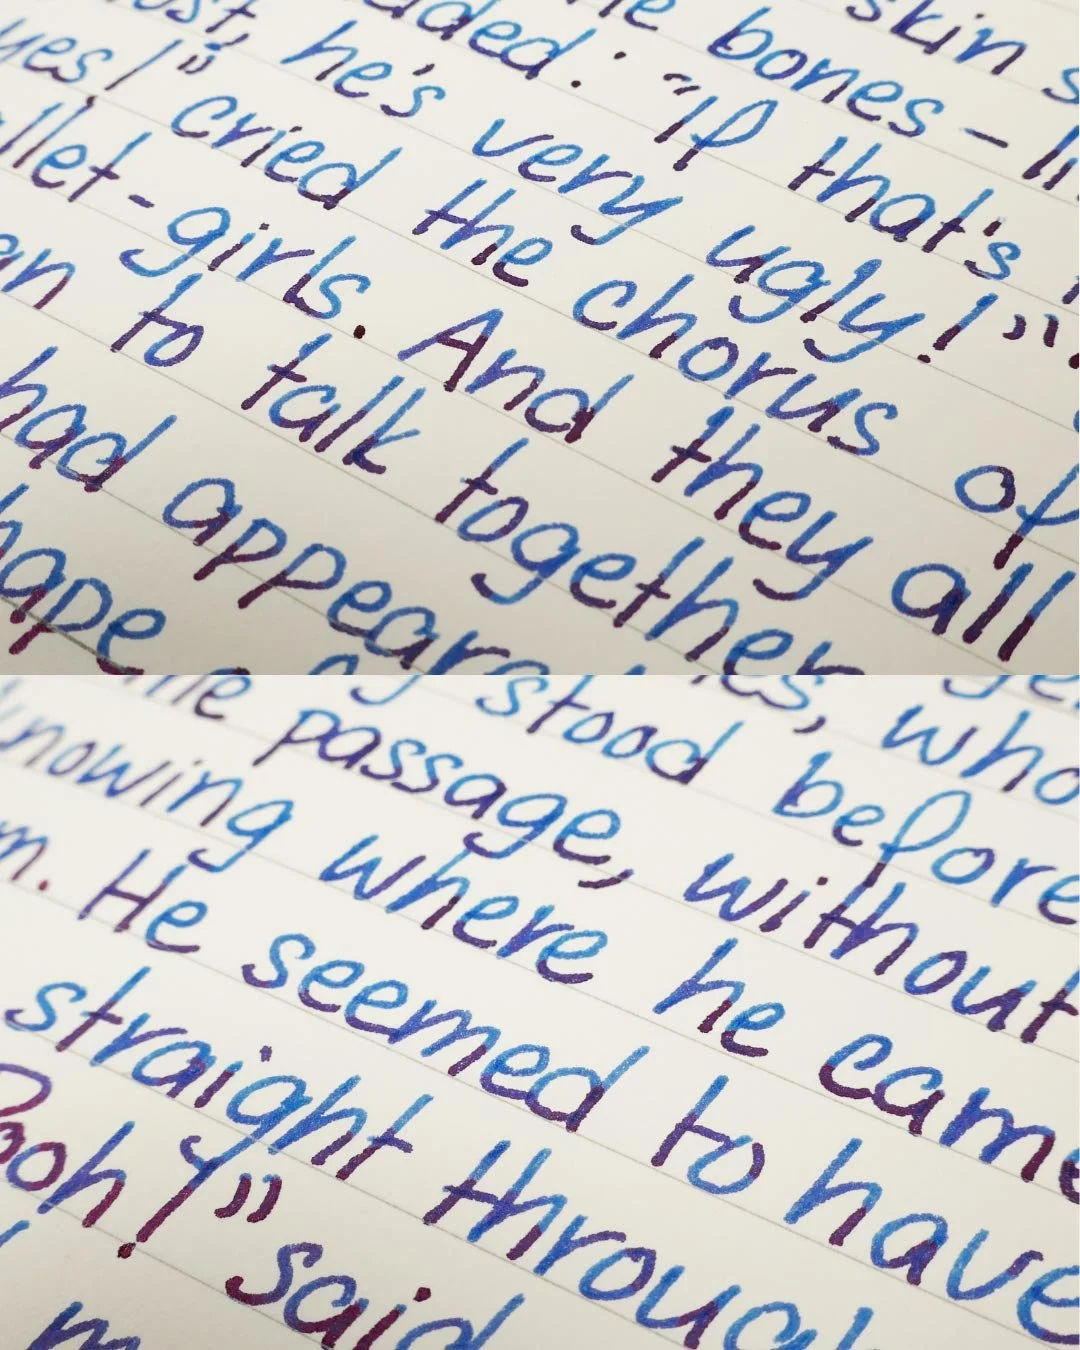 skin s
bones – li
aded: "If that's
st, he's very ugly!".
yes!" cried the chorus of
llet-girls. And they all
an to talk together
had appear
hape
who
stood before
the passage, without
knowing where he came
m. He seemed to have
straight through
Pooh!" said